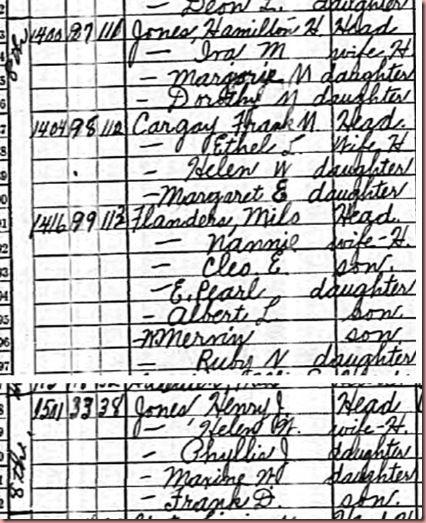 — Leon L. daughter
1400 97 110 Jones, Hamilton H Head
— Iva M wife-H
— Marjorie M daughter
— Dorothy M daughter
1404 98 112 Cargay Frank M. Head
— Ethel L. Wife, H
— Helen W daughter
— Margaret E daughter
1416 99 113 Flanders, Milo Head
— Nannie wife-H.
— Cleo E. son
— E. Pearl daughter
— Albert L son
— Mervin son
— Ruby N daughter
1501 33 38 Jones, Henry J. Head
— Helen W. wife-H.
— Phyllis J daughter
— Maxine W daughter
— Frank D. son
8th